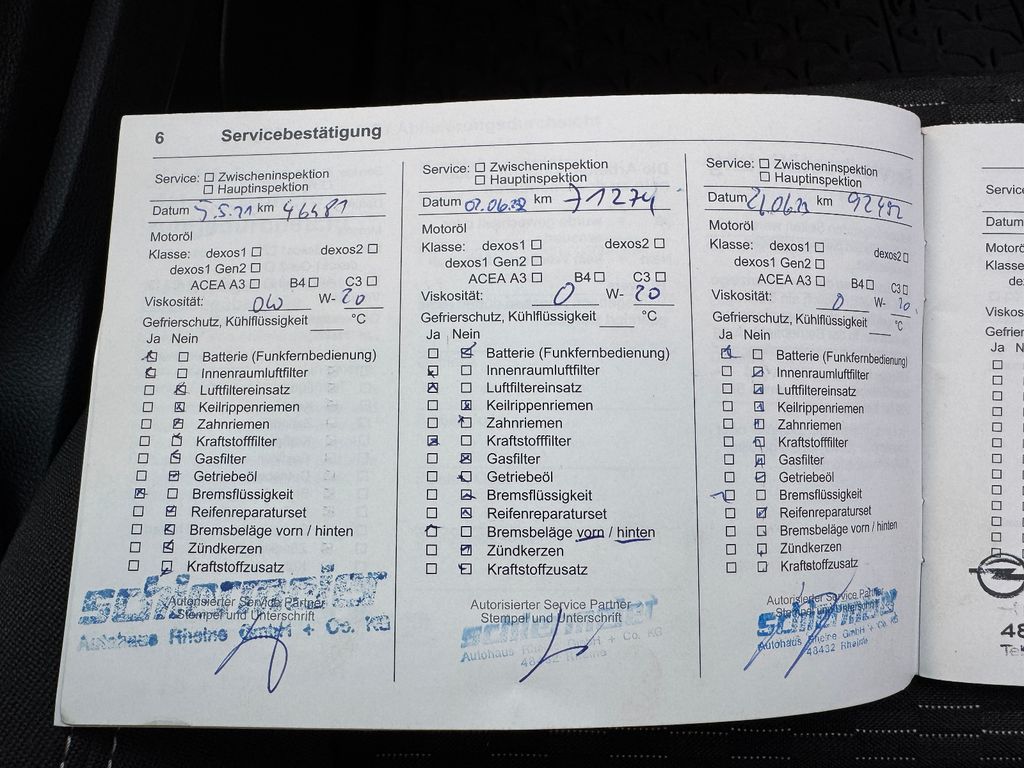 6 Servicebestätigung
Service: ☐ Zwischeninspektion
☐ Hauptinspektion
Datum 5.5.21 km 46481
Motoröl
Klasse: dexos1 ☐ dexos2 ☐
dexos1 Gen2 ☐
ACEA A3 ☐ B4 ☐ C3 ☐
Viskosität: 0W W- 20
Gefrierschutz, Kühlflüssigkeit ____ °C
Ja Nein
Batterie (Funkfernbedienung)
Innenraumluftfilter
Luftfiltereinsatz
Keilrippenriemen
Zahnriemen
Kraftstofffilter
Gasfilter
Getriebeöl
Bremsflüssigkeit
Reifenreparaturset
Bremsbeläge vorn / hinten
Zündkerzen
Kraftstoffzusatz
Autorisierter Service Partner
Stempel und Unterschrift
Autohaus Rheine GmbH + Co. KG
Service: ☐ Zwischeninspektion
☐ Hauptinspektion
Datum 02.06.22 km 71274
Motoröl
Klasse: dexos1 ☐ dexos2 ☐
dexos1 Gen2 ☐
ACEA A3 ☐ B4 ☐ C3 ☐
Viskosität: 0 W- 20
Gefrierschutz, Kühlflüssigkeit ____ °C
Ja Nein
Batterie (Funkfernbedienung)
Innenraumluftfilter
Luftfiltereinsatz
Keilrippenriemen
Zahnriemen
Kraftstofffilter
Gasfilter
Getriebeöl
Bremsflüssigkeit
Reifenreparaturset
Bremsbeläge vorn / hinten
Zündkerzen
Kraftstoffzusatz
Autorisierter Service Partner
Stempel und Unterschrift
Autohaus Rheine GmbH + Co. KG
48432 Rheine
Service: ☐ Zwischeninspektion
☐ Hauptinspektion
Datum 21.06.23 km 92492
Motoröl
Klasse: dexos1 ☐ dexos2 ☐
dexos1 Gen2 ☐
ACEA A3 ☐ B4 ☐ C3 ☐
Viskosität: 0 W- 20
Gefrierschutz, Kühlflüssigkeit ____ °C
Ja Nein
Batterie (Funkfernbedienung)
Innenraumluftfilter
Luftfiltereinsatz
Keilrippenriemen
Zahnriemen
Kraftstofffilter
Gasfilter
Getriebeöl
Bremsflüssigkeit
Reifenreparaturset
Bremsbeläge vorn / hinten
Zündkerzen
Kraftstoffzusatz
Autorisierter Service Partner
Stempel und Unterschrift
Autohaus Rheine GmbH + Co. KG
48432 Rheine